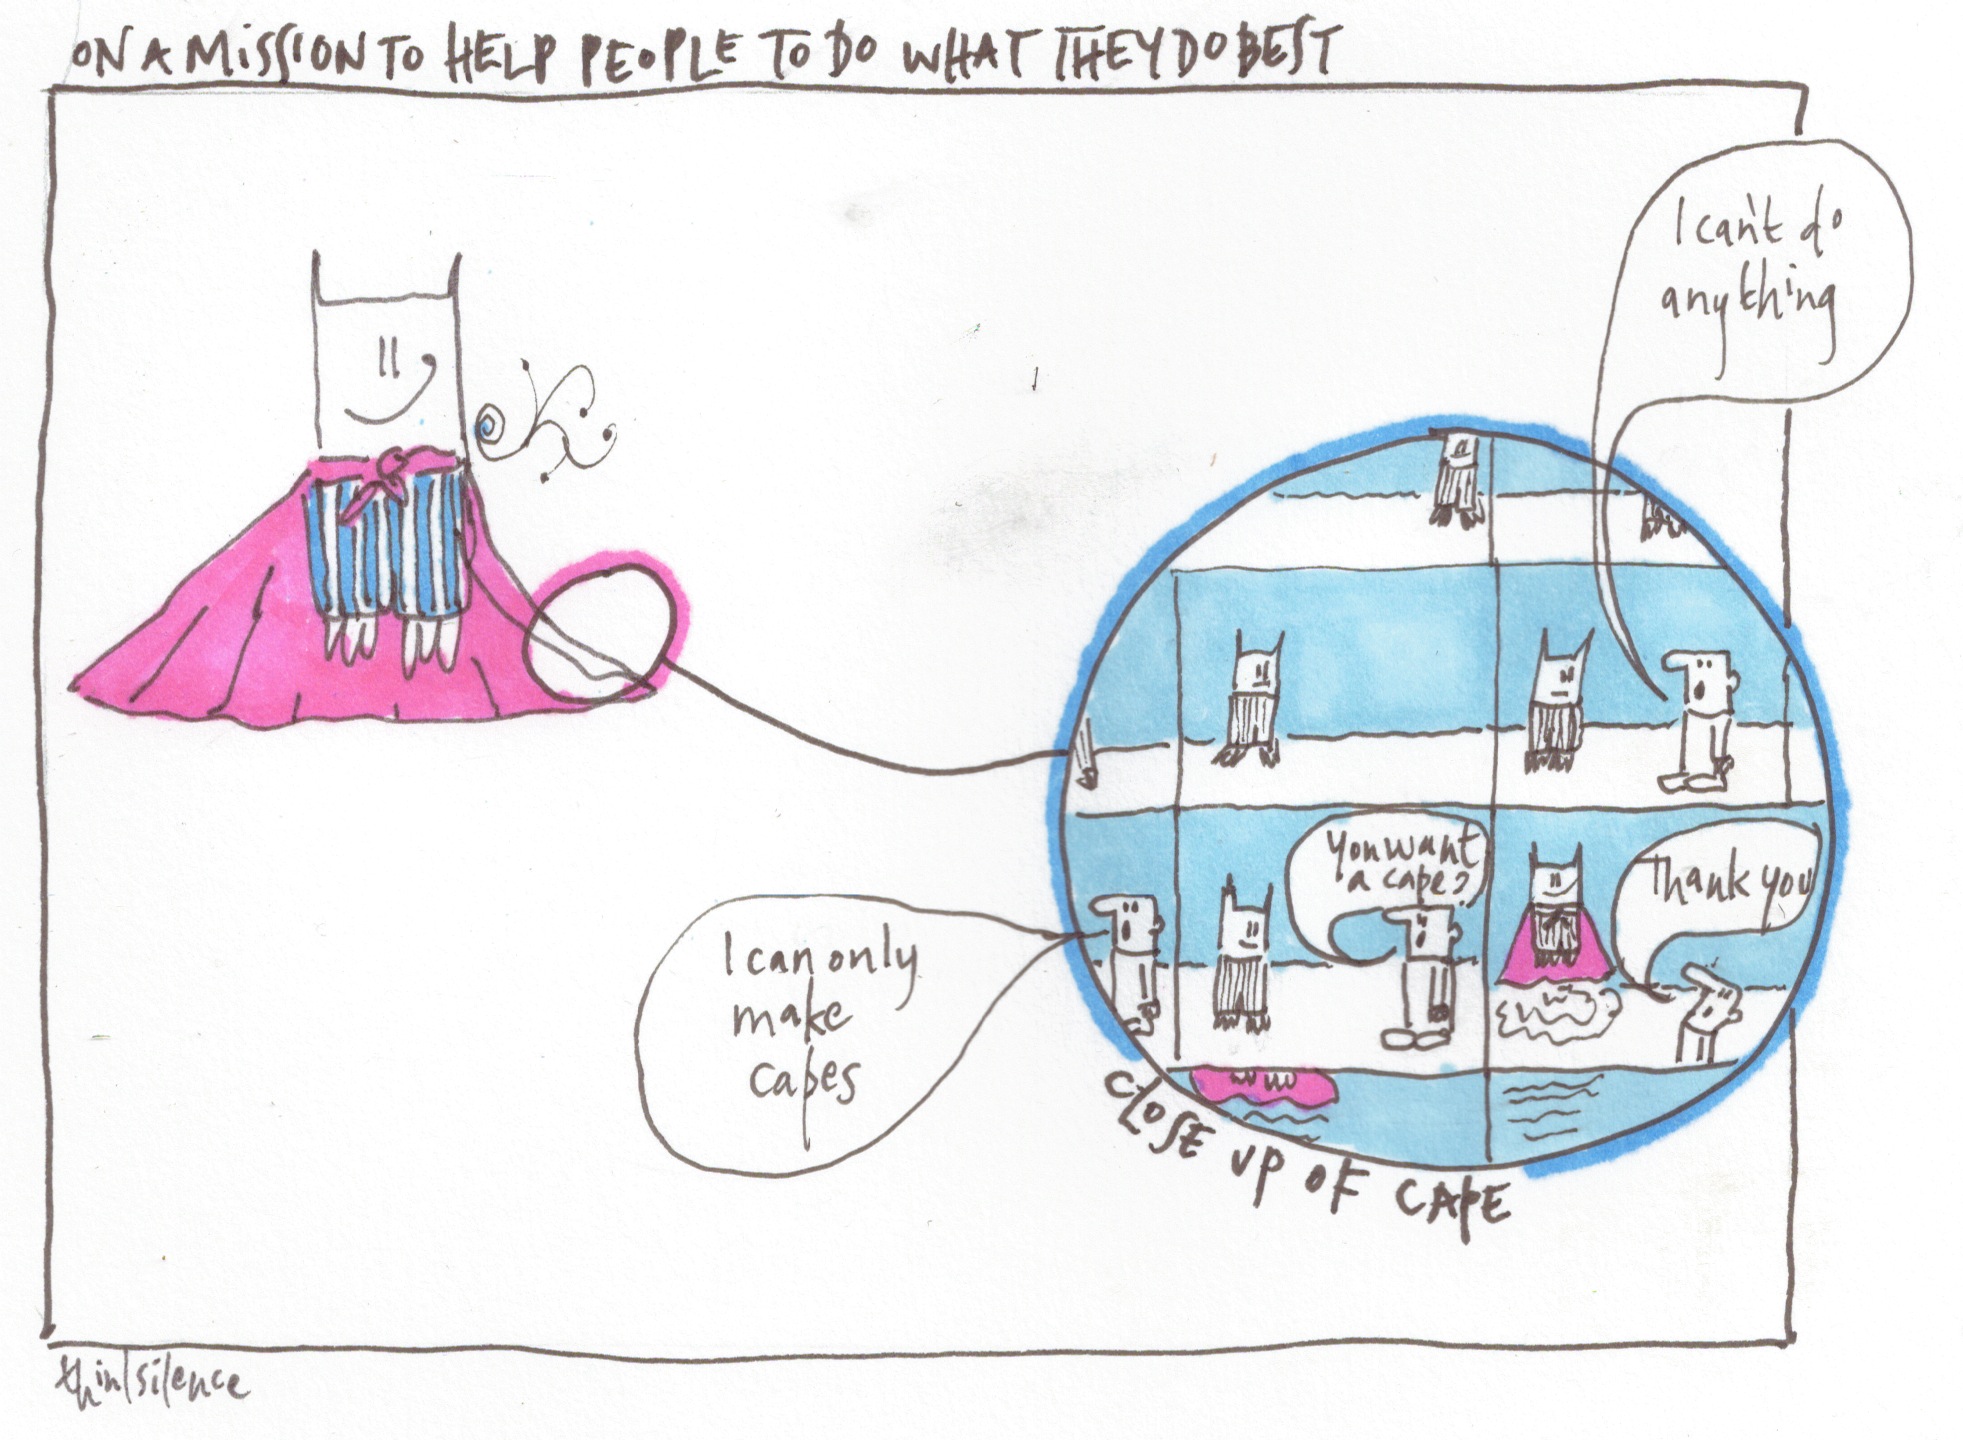 ON A MISSION TO HELP PEOPLE TO DO WHAT THEY DO BEST
I can't do
anything
I can only
make
capes
You want
a cape?
Thank you
CLOSE UP OF CAPE
thin|silence